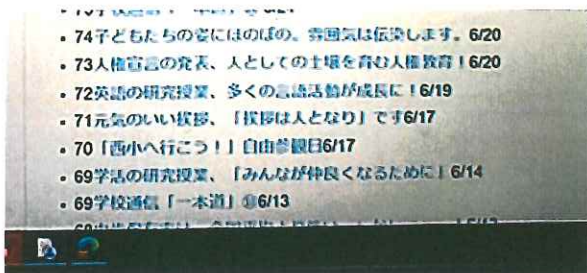 ・74子どもたちの姿にほのぼの。雰囲気は伝染します。6/20
・73人権宣言の発表、人としての土壌を育む人権教育！6/20
・72英語の研究授業、多くの言語活動が成長に！6/19
・71元気のいい挨拶、「挨拶は人となり」です6/17
・70「西小へ行こう！」自由参観日6/17
・69学活の研究授業、「みんなが仲良くなるために」6/14
・69学校通信「一本道」⑩6/13